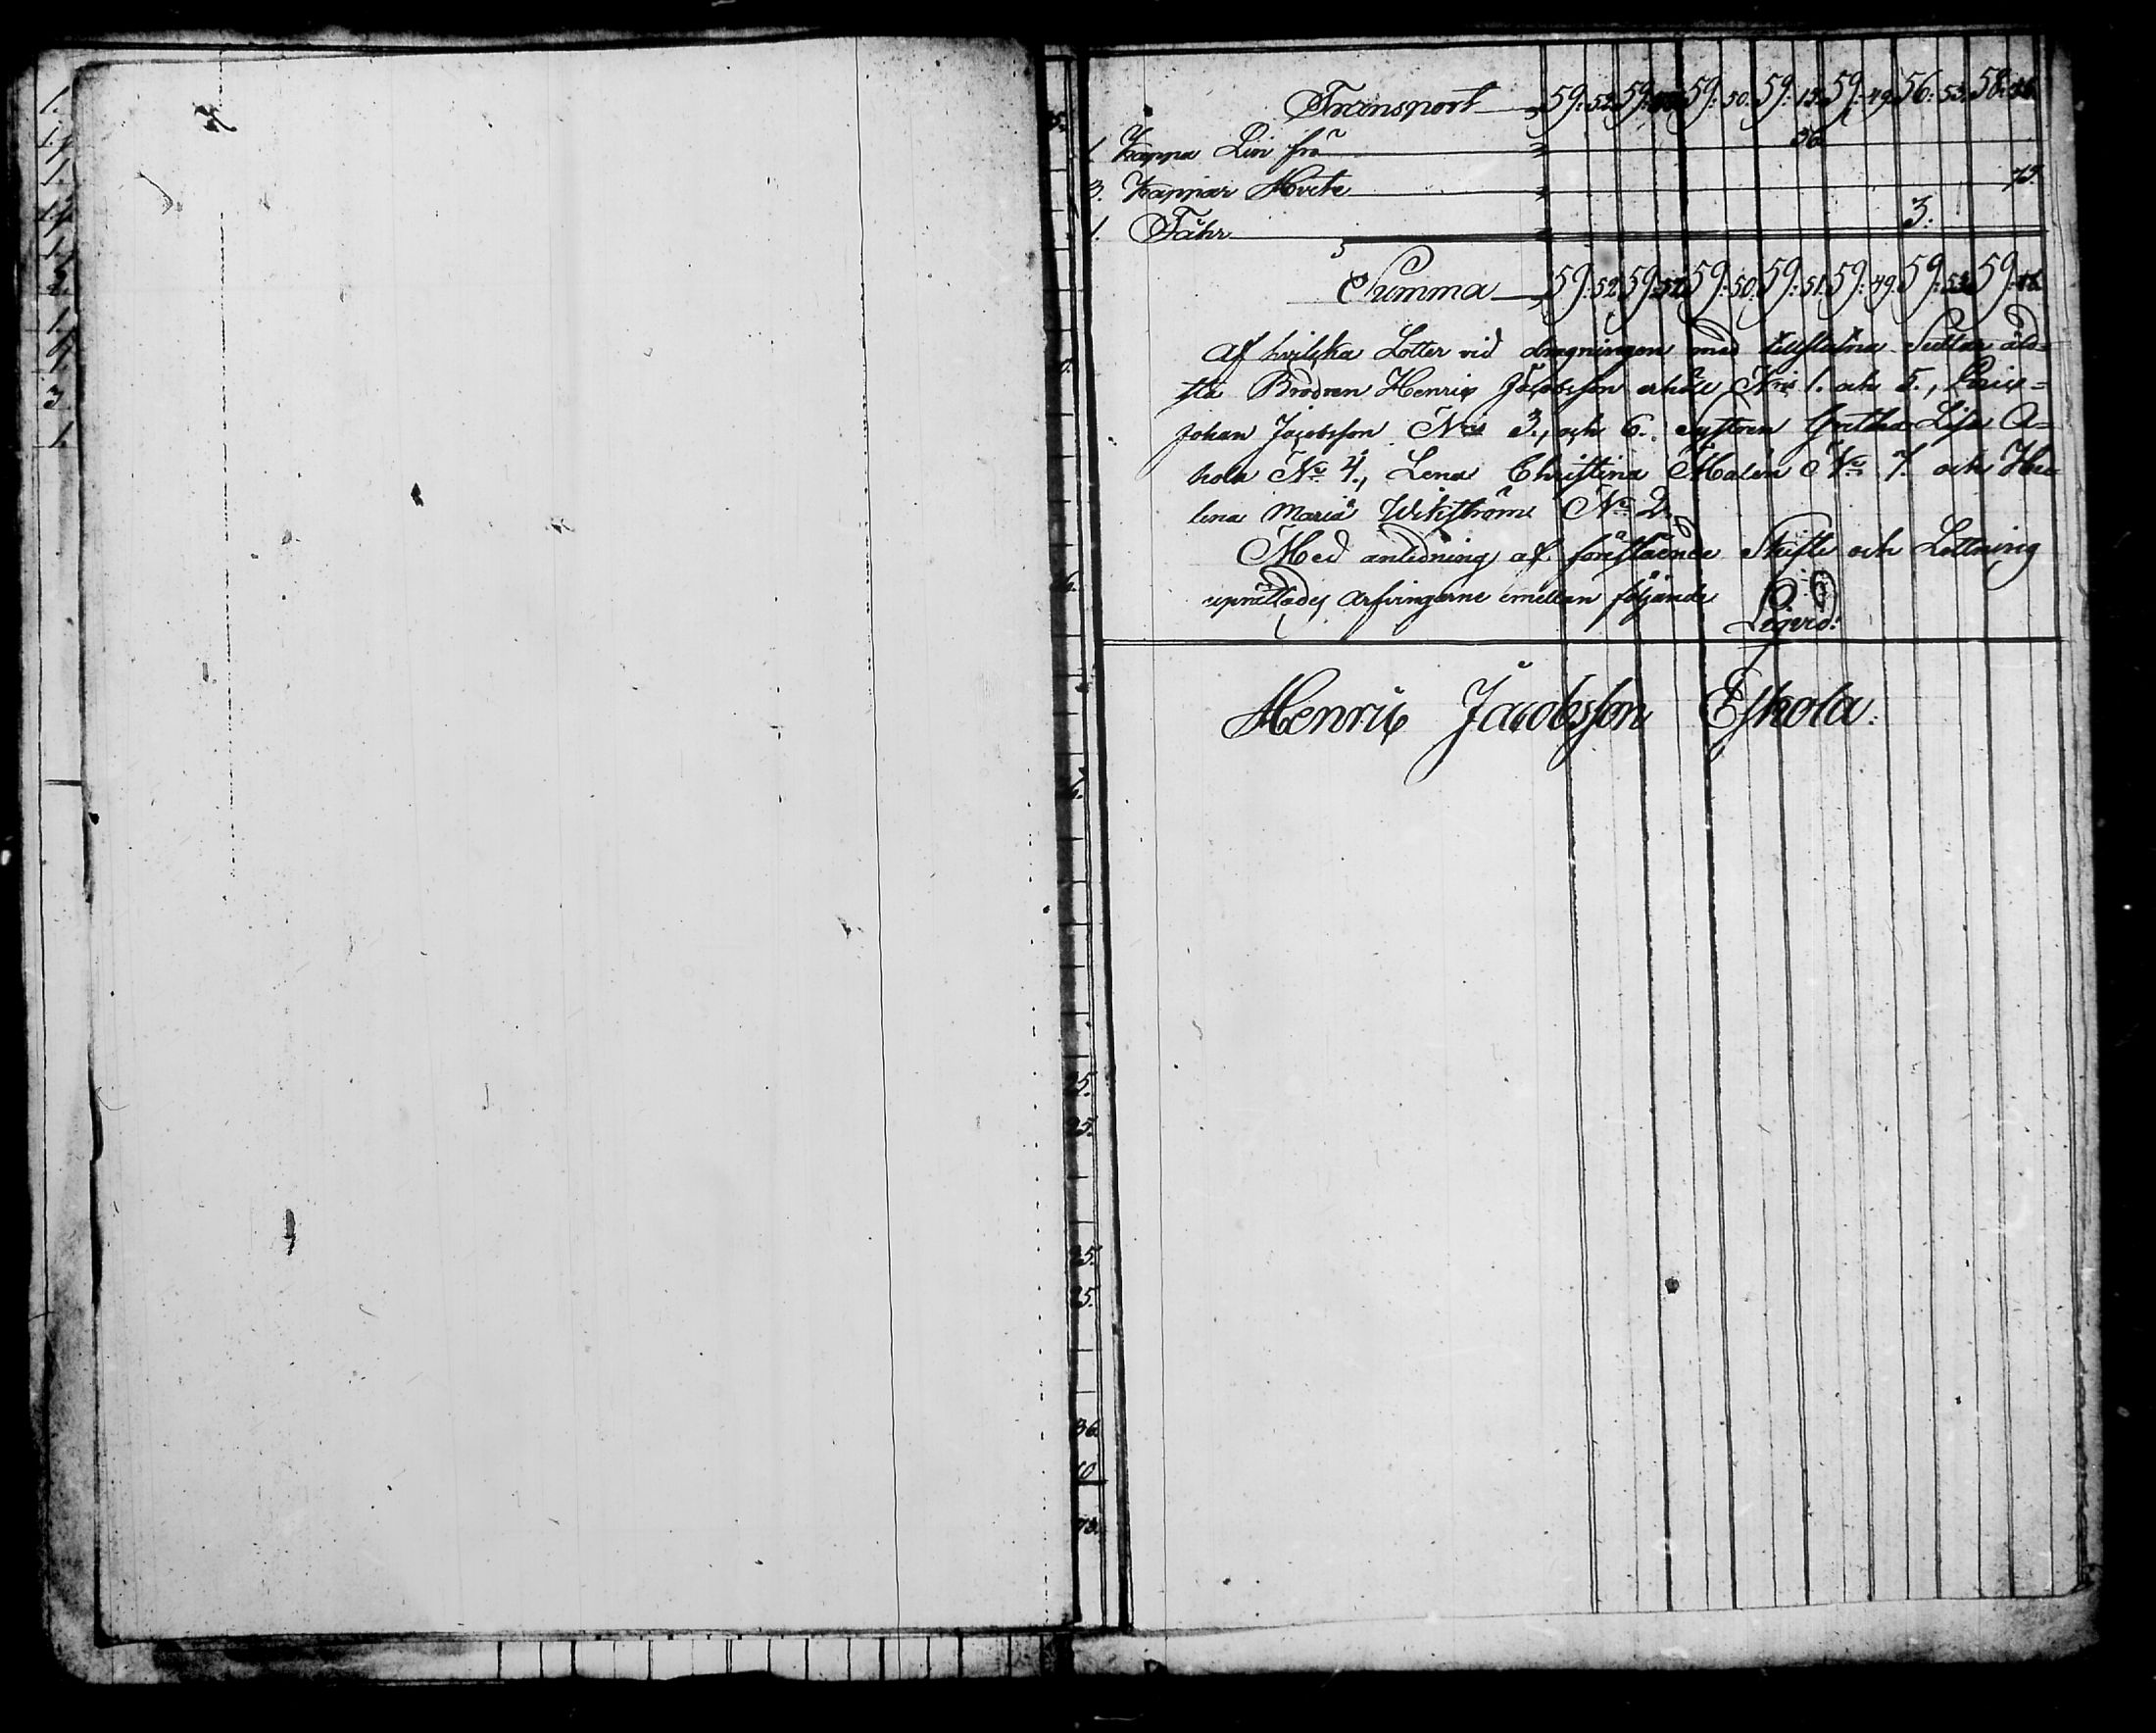 Transport 59: 52. 59: 59: 50. 59: 13. 59: 49. 56: 53. 58:
1. Kappa Lin frö 36.
3. Kappar Hvete 73.
1. Fåhr 3.
Summa 59: 52. 59: 52. 59: 50. 59: 51. 59: 49. 59: 53. 59:
Af hvilka Lotter vid dragningen med tillslutna Sedlar äld=
sta Brodren Henric Jacobsson erhöll N:ris 1. och 5.,
Johan Jacobsson N:ris 3., och 6. Systren Gretha Lisa A=
hola N:o 4., Lena Christina Malén N:o 7. och He=
lena Maria Wikström N:o 2.
Med anledning af förestående Skifte och Lottning
uprättades arfvingarne emellan följande
Liqvid:
Henric Jacobsson Eskola.
1.
1.
1.
1.
1.
2.
1.
1.
3.
1.
25.
25.
25.
25.
36.
10.
73.